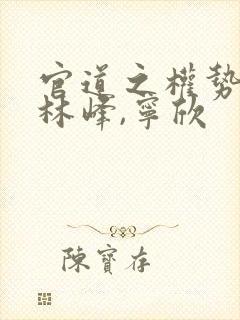 官道之權勢
林峰,寧欣
陳寶存